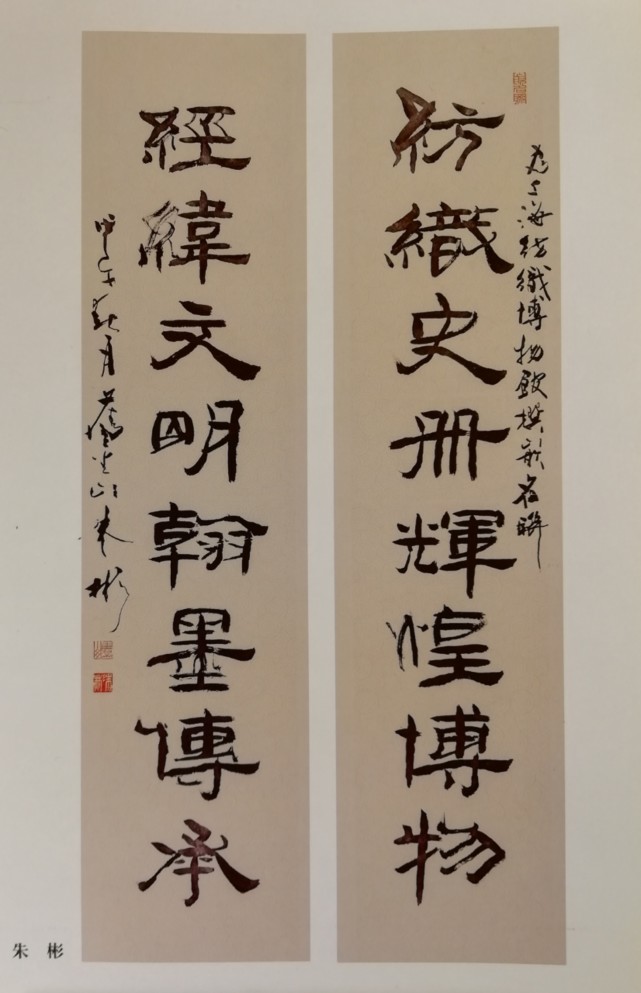 为上海纺織博物館撰嵌名聯
紡織史冊輝煌博物
經緯文明翰墨傳承
甲午秋月朱彬
朱 彬